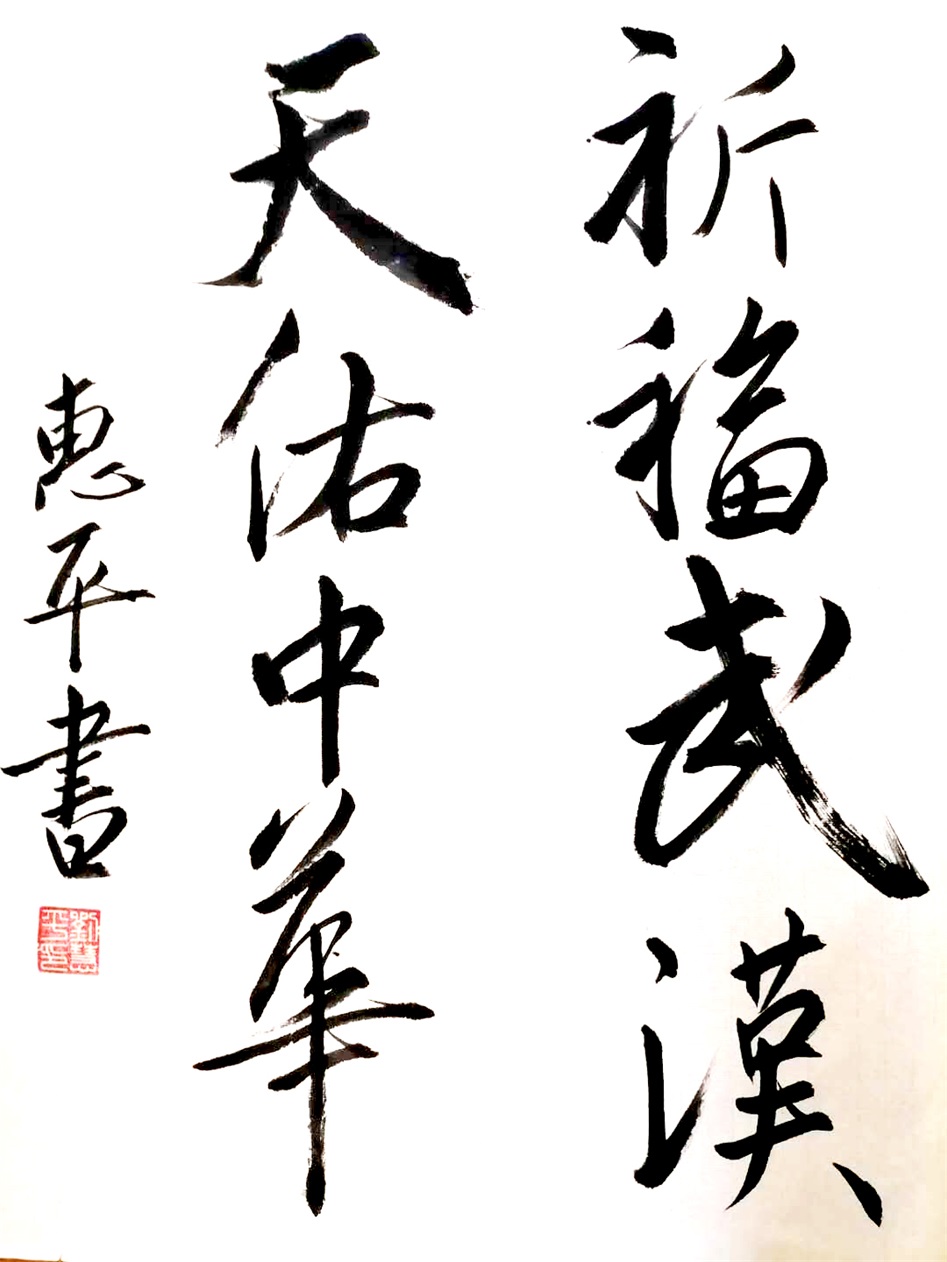 祈福武漢
天佑中華
惠平書
劉慧平印